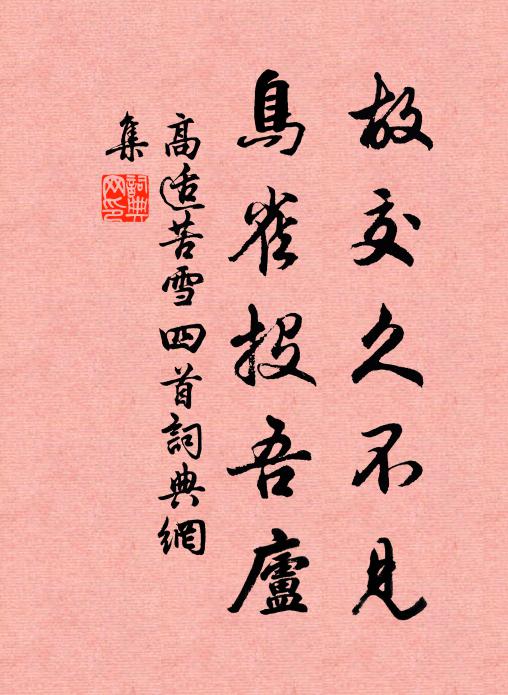 故交久不見
鳥雀投吾廬
高适苦雪四首詞典網
集
詞典网印